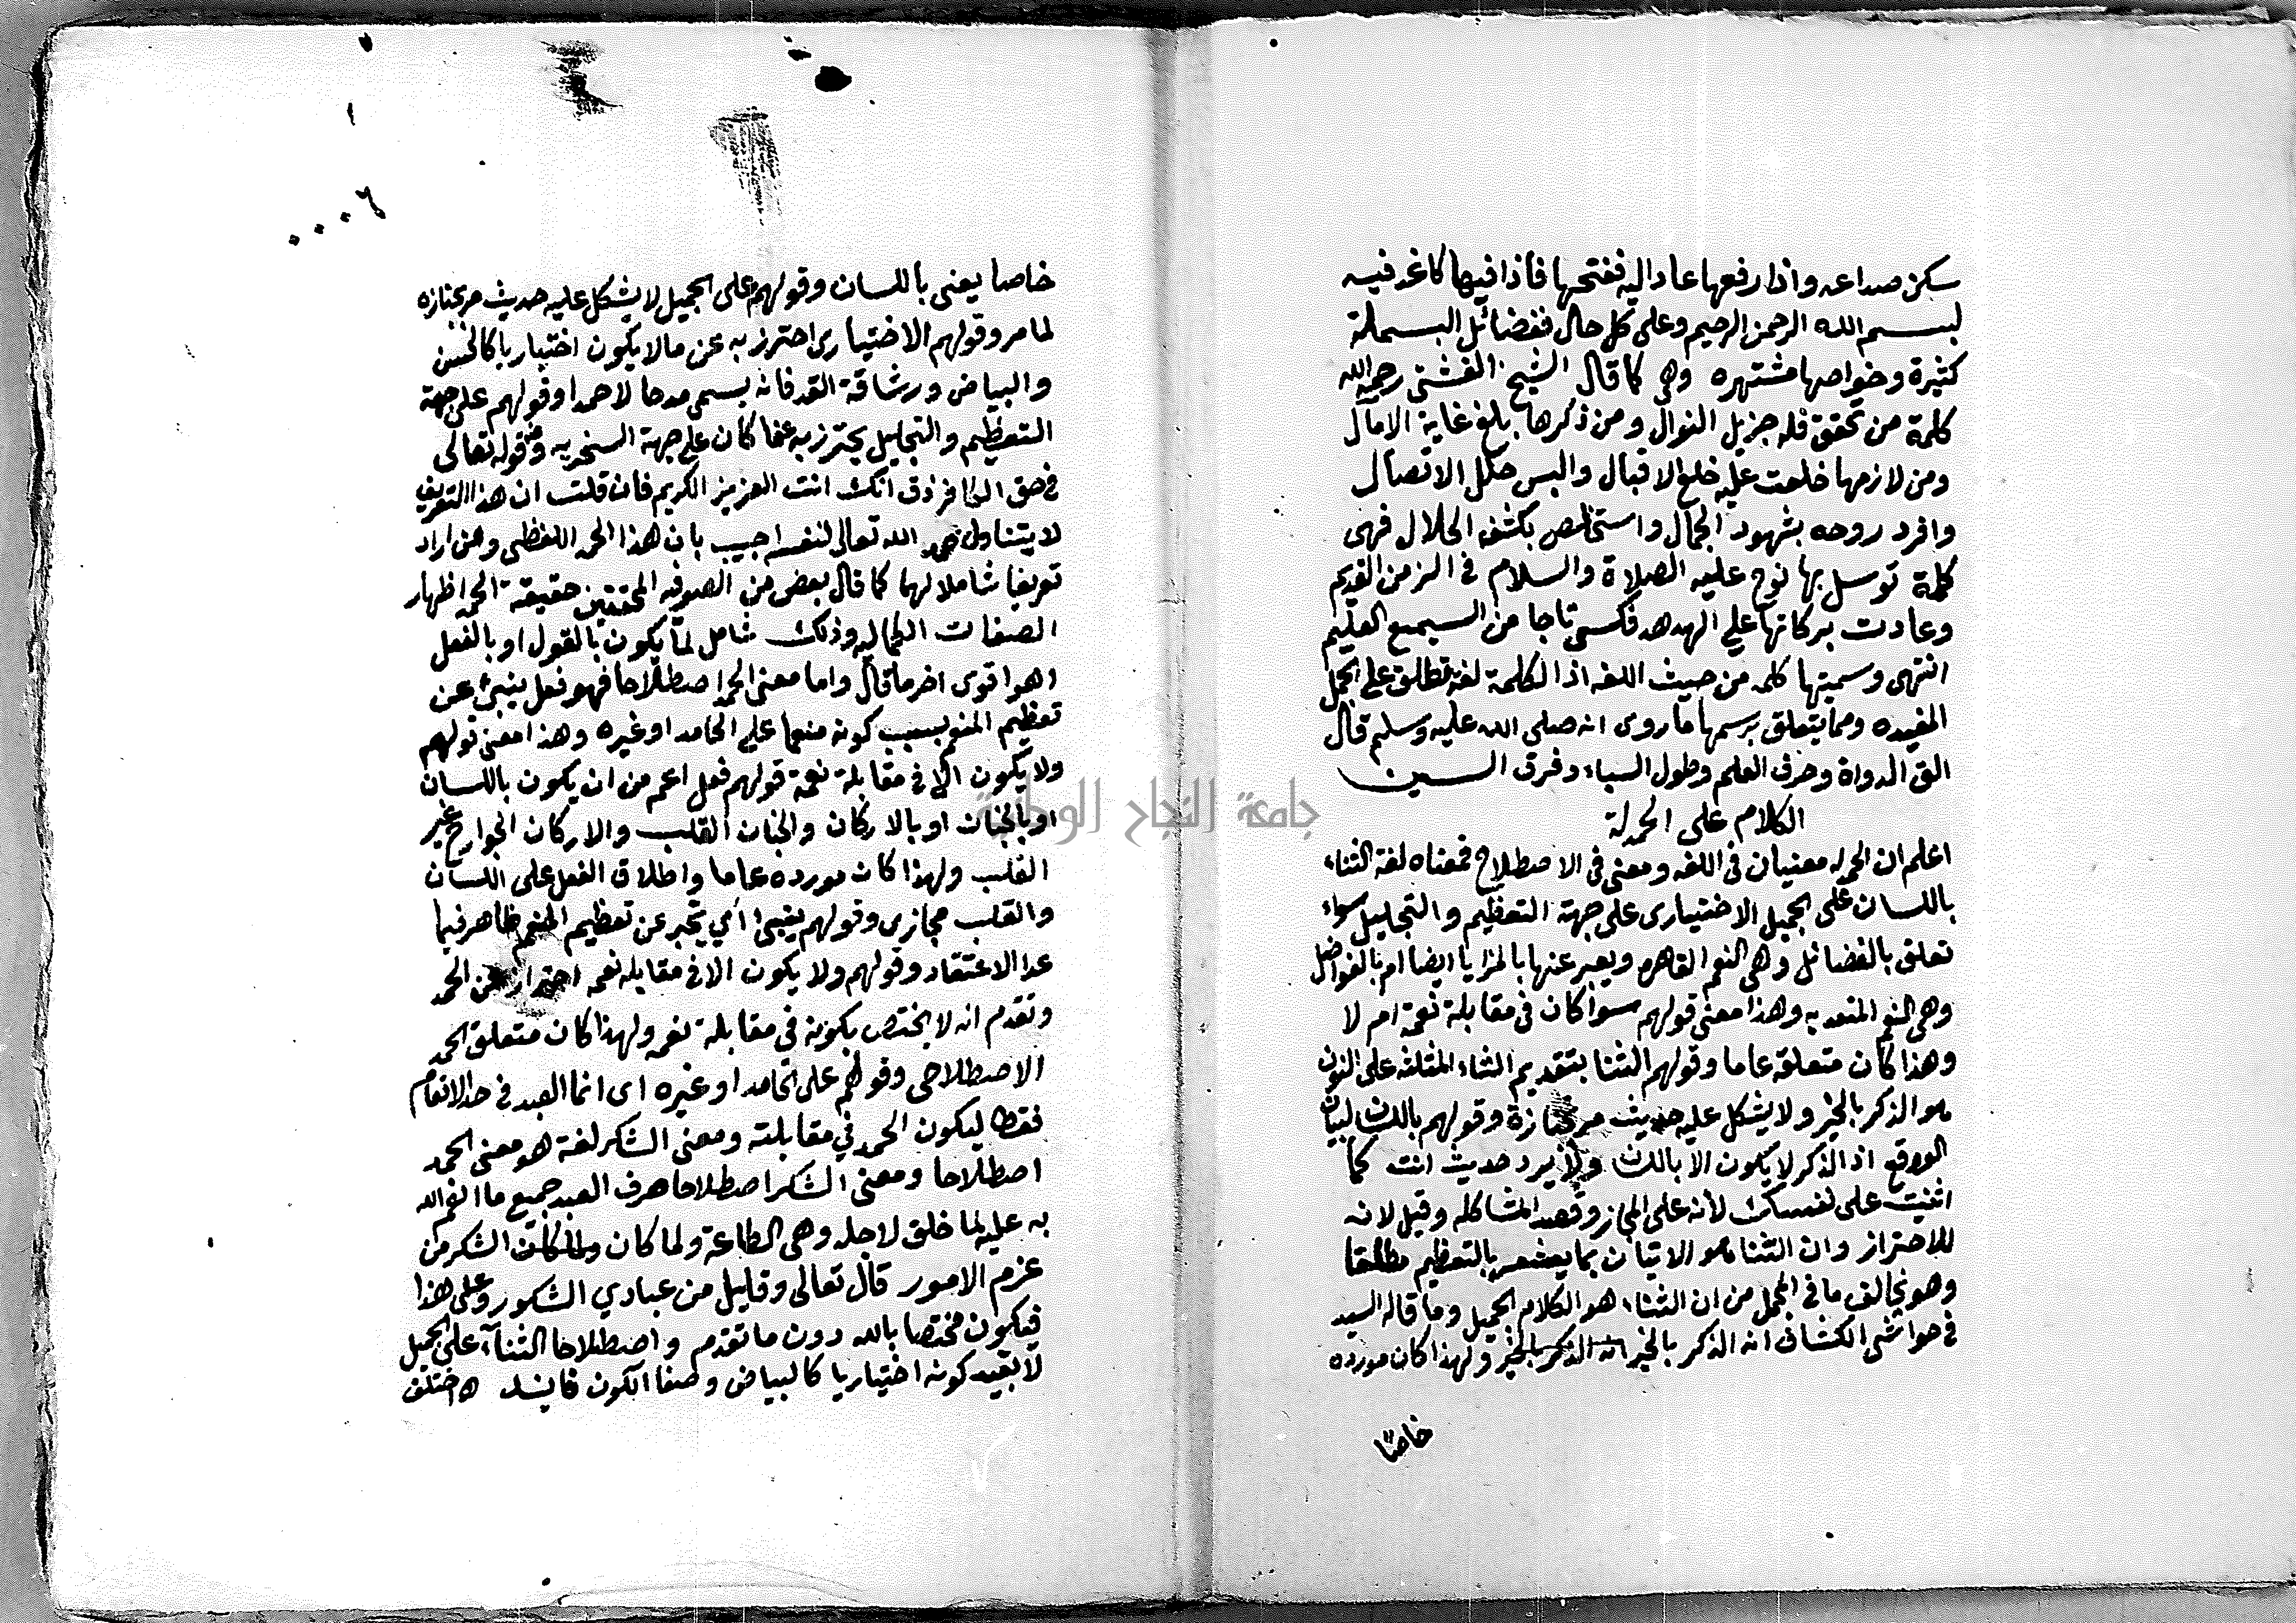 سكن صداعه واذا رفعها عاد اليه ففتحها فاذا فيها كاغد فيه
بسم الله الرحمن الرحيم وعلى كل حال ففضائل البسملة
كثيرة وخواصها مشتهره وهى كما قال الشيخ الفشنى رحمه الله
كلمة من تحقق فله جزيل النوال ومن ذكرها بلغ غاية الامال
ومن لازمها خلعت عليه خلع الاقبال والبس حلل الاتصال
وافرد روحه بشهود الجمال واستخلص بكشف الجلال فهى
كلمة توسل بها نوح عليه الصلاة والسلام فى الزمن القديم
وعادت بركاتها على الهدهد فكسى تاجا من السميع العليم
انتهى وسميتها كلمه من حيث اللغه اذ الكلمة لغة تطلق على الجمل
المفيده ومما يتعلق برسمها ما روى انه صلى الله عليه وسلم قال
الق الدواة وحرف القلم وطول الباء وفرق السين
الكلام على الحمدلة
اعلم ان الحمد له معنيان فى اللغه ومعنى فى الاصطلاح فمعناه لغة الثناء
باللسان على الجميل الاختيارى على جهة التعظيم والتجليل سواء
تعلق بالفضائل وهى النعم القاهره ويعبر عنها بالمزايا ايضا ام بالفواضل
وهى النعم المتعديه وهذا معنى قولهم سوا كان فى مقابلة نعمة ام لا
وهذا كان متعلقه عاما وقولهم الثنا بتقديم الثاء المثلثه على النون
هو الذكر بالخير ولا يشكل عليه حديث مر بجنازة وقولهم باللسان لبيان
الووقع اذ الذكر لا يكون الا باللسان ولا يرد حديث انت كما
اثنيت على نفسك لأنه على المجاز وقصد المشاكله وقيل لانه
للاحتراز وان الثنا هو الاتيان بما يشعر بالتعظيم مطلقا
وهو يخالف ما فى المجمل من ان الثناء هو الكلام الجميل وما قاله السيد
فى حواشى الكشاف انه الذكر بالخير انه الذكر بالخير ولهذا كان مورده
خاصا
خاصا يعنى باللسان وقولهم على الجميل لا يشكل عليه حديث مر بجنازه
لما مر وقولهم الاختيارى احترز به عن ما لا يكون اختياريا كالحسن
والبياض ورشاقة القد فانه يسمى مدحا لا حمدا وقولهم على جهة
التعظيم والتجليل يحترز به عما كان على جهة السخريه وقوله تعالى
فى حق الكافر ذق انك انت العزيز الكريم فان قلت ان هذا التعريف
لا يتناول حمد الله تعالى لنفسه اجيب بان هذا الحمد اللفظى ومن اراد
تعريفا شاملا لهما كما قال بعض من الصوفه المحققين حقيقة الحمد اظهار
الصفات الكماليه وذلك شامل لما يكون بالقول او بالفعل
وهو اقوى اخر ما قال واما معنى الحمد اصطلاحا فهو فعل ينبئ عن
تعظيم المنعم بسبب كونه منعما على الحامد او غيره وهذا معنى قولهم
ولا يكون الا فى مقابلة نعمة قولهم فعل اعم من ان يكون باللسان
او بالجنان او بالاركان والجنان القلب والاركان الجوارح غير
القلب ولهذا كان مورده عاما واطلاق الفعل على اللسان
والقلب مجازى وقولهم ينبئ اى يخبر عن تعظيم المنعم ظاهر فيما
عدا الاعتقاد وقولهم ولا يكون الا فى مقابله نعمه احتراز عن الحمد
وتقدم انه لا يختص بكونه فى مقابلة نعمه ولهذا كان متعلق الحمد
الاصطلاحى وقولهم على الحامد او غيره اى انما العبد فى حد الانعام
فقط ليكون الحمد فى مقابلته ومعنى الشكر لغة هو معنى الحمد
اصطلاحا ومعنى الشكر اصطلاحا صرف العبد جميع ما انعم الله
به عليه لما خلق لاجله وهى الطاعة ولما كان ولما كان الشكر من
عزم الامور قال تعالى وقليل من عبادي الشكور وعلى هذا
فيكون مختصا بالله دون ما تقدم واصطلاحا الثناء على الجميل
لا بقيد كونه اختياريا كالبياض وصفا الكون اختلف
جامعة النجاح الوطنية